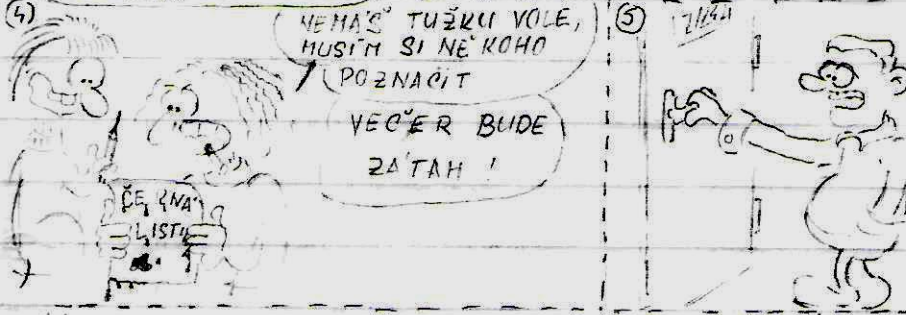 (4)
NEMÁŠ TUŽKU VOLE,
MUSÍM SI NĚKOHO
POZNAČIT
VEČER BUDE
ZÁTAH !
ČERNÁ
LISTI
(5)